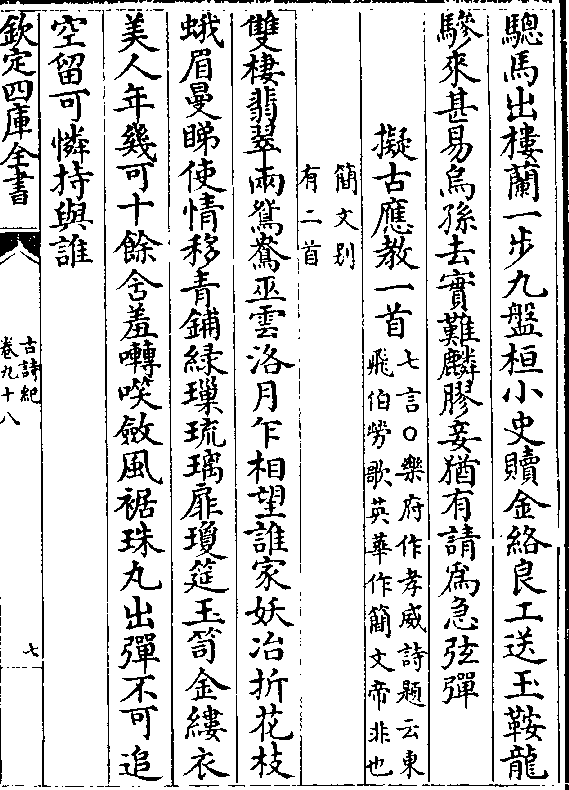 驄馬出樓蘭一步九盤桓小史贖金絡良工送玉鞍龍
驂來甚易烏孫去實難麟膠妾猶有請爲急弦彈
擬古應教一首七言○樂府作孝威詩題云東
飛伯勞歌英華作簡文帝非也
簡文别
有二首
雙棲翡翠兩鴛鴦巫雲洛月乍相望誰家妖冶折花枝
蛾眉曼睇使情移青鋪緑璅琉璃扉瓊筵玉笥金縷衣
美人年幾可十餘含羞囀笑斂風裾珠丸出彈不可追
空留可憐持與誰
欽定四庫全書
古詩紀
卷九十八
七